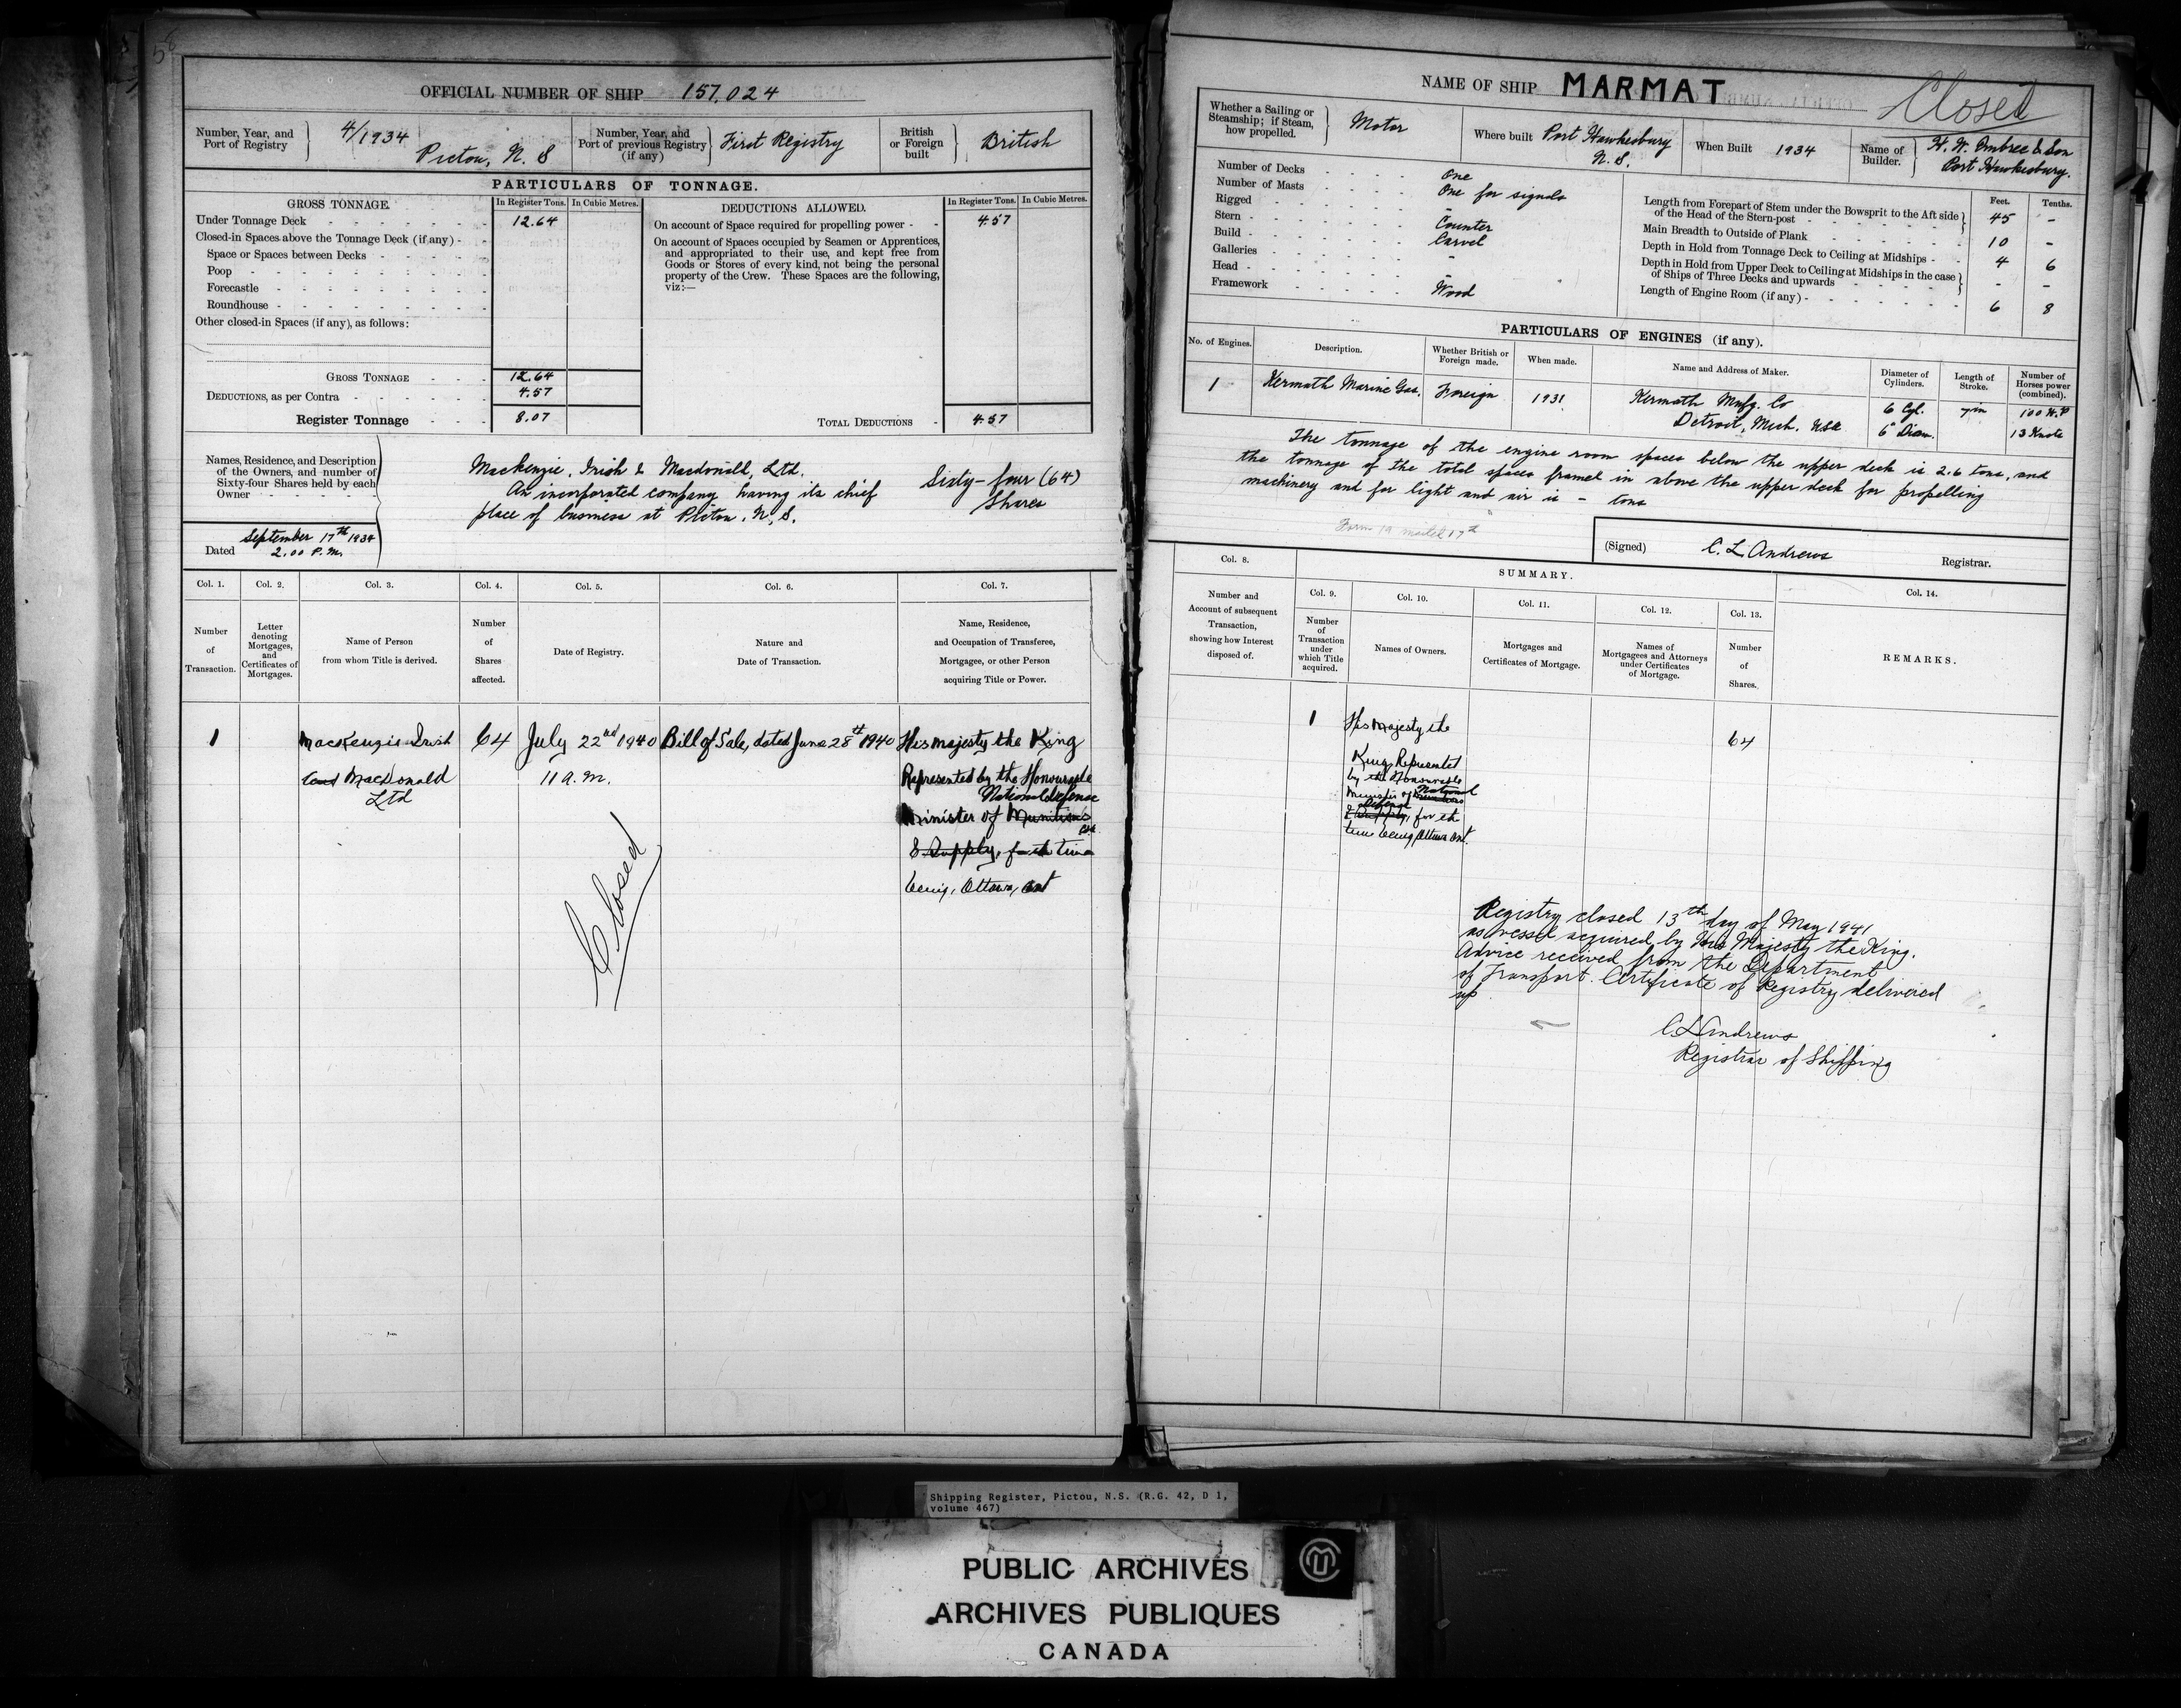 56
OFFICIAL NUMBER OF SHIP 157,024
Number, Year, and
Port of Registry
4/1934
Pictou, N. S
Number, Year, and
Port of previous Registry
(if any)
First Registry
British
or Foreign
built
British
PARTICULARS OF TONNAGE.
GROSS TONNAGE.
In Register Tons.
In Cubic Metres.
Under Tonnage Deck 12.64
Closed-in Spaces above the Tonnage Deck (if any)
Space or Spaces between Decks
Poop
Forecastle
Roundhouse
Other closed-in Spaces (if any), as follows:
GROSS TONNAGE 12.64
DEDUCTIONS, as per Contra 4.57
Register Tonnage 8.07
DEDUCTIONS ALLOWED.
In Register Tons.
In Cubic Metres.
On account of Space required for propelling power 4.57
On account of Spaces occupied by Seamen or Apprentices,
and appropriated to their use, and kept free from
Goods or Stores of every kind, not being the personal
property of the Crew. These Spaces are the following,
viz:—
TOTAL DEDUCTIONS 4.57
Names, Residence, and Description
of the Owners, and number of
Sixty-four Shares held by each
Owner
Mackenzie, Irish & Macdonald, Ltd.
An incorporated company having its chief
place of business at Pictou, N. S.
Sixty-four (64)
Shares
Dated September 17th 1934
2.00 P.M.
Col. 1.
Col. 2.
Col. 3.
Col. 4.
Col. 5.
Col. 6.
Col. 7.
Number
of
Transaction.
Letter
denoting
Mortgages,
and
Certificates of
Mortgages.
Name of Person
from whom Title is derived.
Number
of
Shares
affected.
Date of Registry.
Nature and
Date of Transaction.
Name, Residence,
and Occupation of Transferee,
Mortgagee, or other Person
acquiring Title or Power.
1
MacKenzie Irish
and MacDonald
Ltd
64
July 22nd 1940
11 A.M.
Bill of Sale, dated June 28th 1940
His Majesty the King
Represented by the Honourable
National defence
Minister of Munitions
& Supply, for the time
being, Ottawa, Ont
Closed
NAME OF SHIP MARMAT
Closed
Whether a Sailing or
Steamship; if Steam,
how propelled.
Motor
Where built
Port Hawkesbury
N. S.
When Built
1934
Name of
Builder.
H. W. Embree & Son
Port Hawkesbury.
Number of Decks One
Number of Masts One for signals
Rigged -
Stern Counter
Build Carvel
Galleries -
Head -
Framework Wood
Feet.
Tenths.
Length from Forepart of Stem under the Bowsprit to the Aft side
of the Head of the Stern-post 45 -
Main Breadth to Outside of Plank 10 -
Depth in Hold from Tonnage Deck to Ceiling at Midships 4 6
Depth in Hold from Upper Deck to Ceiling at Midships in the case
of Ships of Three Decks and upwards - -
Length of Engine Room (if any) 6 8
PARTICULARS OF ENGINES (if any).
No. of Engines.
Description.
Whether British or
Foreign made.
When made.
Name and Address of Maker.
Diameter of
Cylinders.
Length of
Stroke.
Number of
Horses power
(combined).
1
Kermath Marine Gas.
Foreign
1931
Kermath Mnfg. Co
Detroit, Mich. USA
6 Cyl.
6" Diam.
7 in
100 H.P
13 Knots
The tonnage of the engine room spaces below the upper deck is 2.6 tons, and
the tonnage of the total spaces framed in above the upper deck for propelling
machinery and for light and air is - tons
Form 19 mailed 17th
(Signed) C. L. Andrews Registrar.
Col. 8.
SUMMARY.
Col. 9.
Col. 10.
Col. 11.
Col. 12.
Col. 13.
Col. 14.
Number and
Account of subsequent
Transaction,
showing how Interest
disposed of.
Number
of
Transaction
under
which Title
acquired.
Names of Owners.
Mortgages and
Certificates of Mortgage.
Names of
Mortgagees and Attorneys
under Certificates
of Mortgage.
Number
of
Shares.
REMARKS.
1
His Majesty the
King Represented
by the Honourable
National
Minister of Munitions
Defence
& Supply, for the
time being, Ottawa Ont.
64
Registry closed 13th day of May 1941
as vessel acquired by His Majesty the King.
Advice received from the Department
of Transport. Certificate of Registry delivered
up
C L Andrews
Registrar of Shipping
Shipping Register, Pictou, N.S. (R.G. 42, D 1,
volume 467)
PUBLIC ARCHIVES
ARCHIVES PUBLIQUES
CANADA